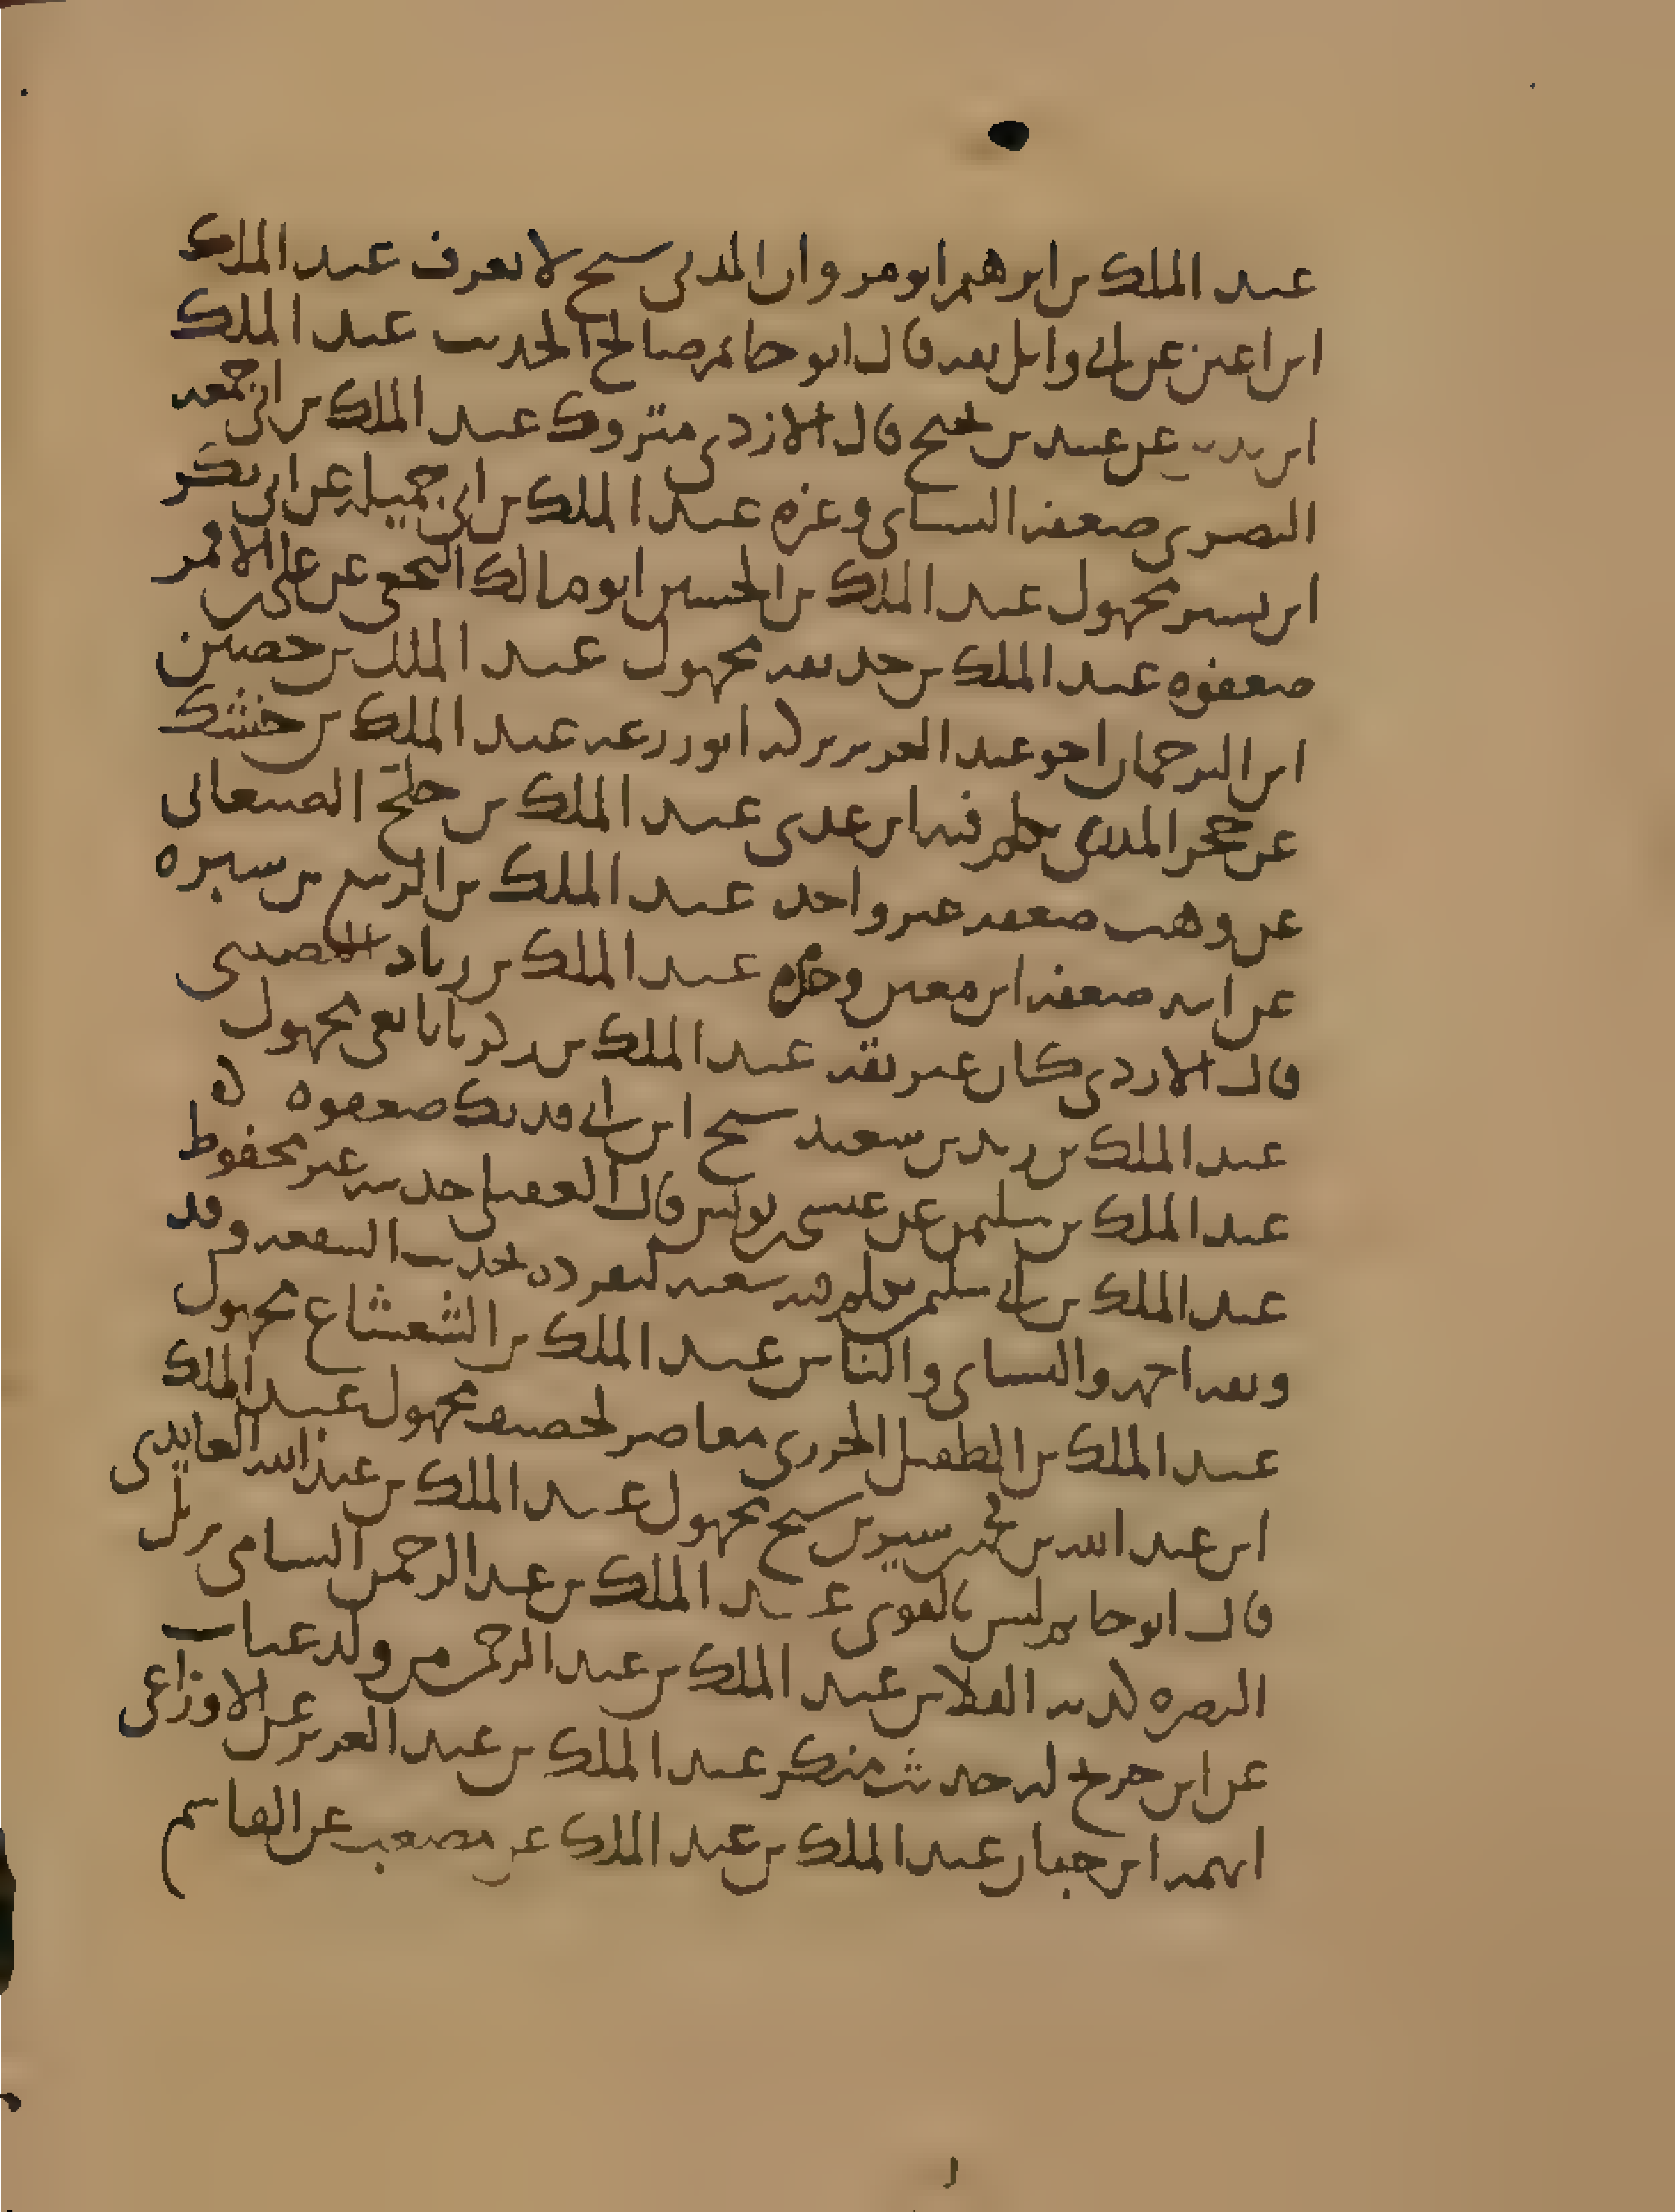 عبد الملك بن ابرهيم ابو مروان المدني شيخ لا يعرف عبد الملك
ابن اعين عن ابي وايل ثقة قال ابو حاتم صالح الحديث عبد الملك
ابن عن عبيد بن قال الازدي متروك عبد الملك بن ابي جمعه
البصري ضعفه النساي وغيره عبد الملك بن ابي جميلة عن ابي بكر
ابن بشير مجهول عبد الملك بن الحسين ابو مالك النخعي عن علي بن الاقمر
ضعفوه عبد الملك بن مجهول عبد الملك بن حصين
ابن الترجمان اخو عبد العزيز تركه ابو زرعه عبد الملك بن خشك
عن حجر المدري تكلم فيه ابن عدي عبد الملك بن خلج الصنعاني
عن وهب ضعفه غير واحد عبد الملك بن الربيع بن سبره
عن ابيه ضعفه ابن معين عبد الملك بن زياد النصيبي
قال الازدي كان غير ثقه عبد الملك بن مجهول
عبد الملك بن زيد بن سعيد شيخ ابن ابي فديك ضعفوه
عبد الملك بن سليمن عن عيسى بن يونس قال العقيلي حديثه غير محفوظ
عبد الملك بن ابي سليمن تكلم فيه شعبه لتفرده بحديث الشفعه وقد
وثقه احمد والنساي والناس عبد الملك بن الشعشاع مجهول
عبد الملك بن الطفيل الجزري معاصر لخصيف مجهول عبد الملك
ابن عبد الله بن محمد بن سيرين شيخ مجهول عبد الملك بن عبد الله العايذي
قال ابو حاتم ليس بالقوي عبد الملك بن عبد الرحمن الشامي نزيل
البصره كذبه الفلاس عبد الملك بن عبد الرحمن من ولد عتاب
عن ابن جريج له حديث منكر عبد الملك بن عبد العزيز عن الاوزاعي
اتهمه ابن حبان عبد الملك بن عبد الملك عن مصعب عن القاسم